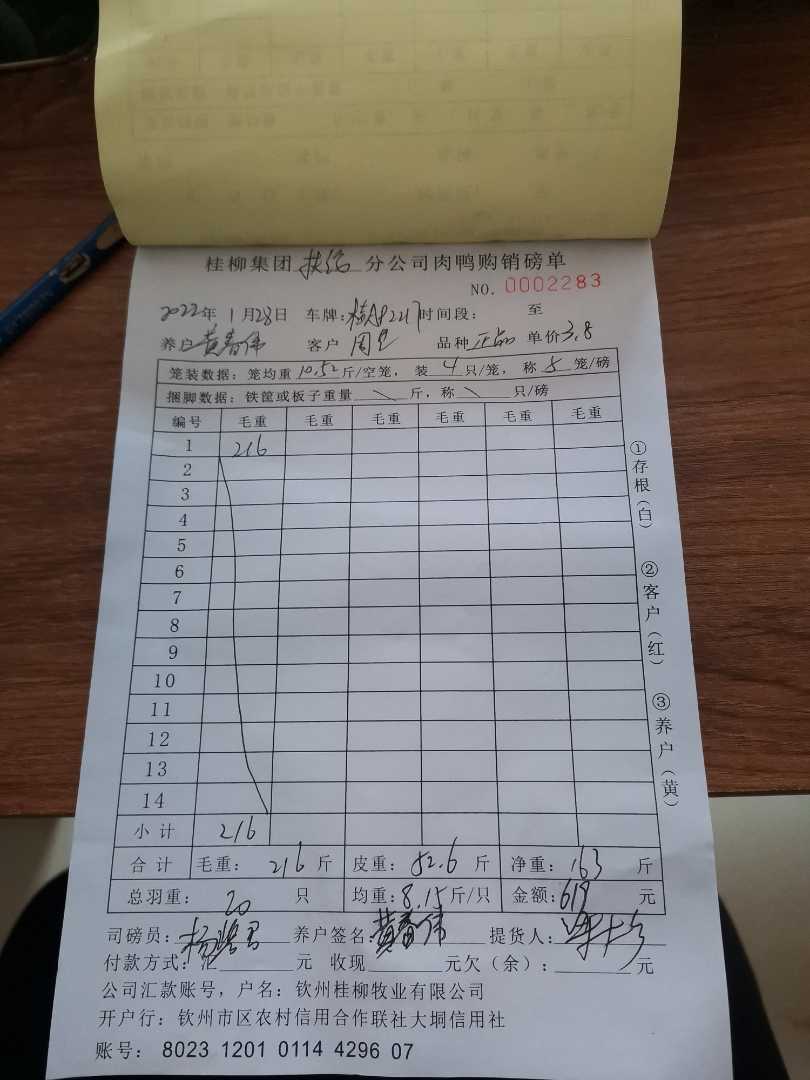 桂柳集团扶绥分公司肉鸭购销磅单
NO. 0002283
2022年 1月28日 车牌: 时间段: 至
养户黄春伟 客户 周 品种 正品 单价3.8
笼装数据: 笼均重10.52斤/空笼, 装 4 只/笼, 称 5 笼/磅
捆脚数据: 铁篮或板子重量 \ 斤, 称 \ 只/磅
编号 毛重 毛重 毛重 毛重 毛重 毛重
1 216
2
3
4
5
6
7
8
9
10
11
12
13
14
小计 216
合计 毛重: 216 斤 皮重: 52.6 斤 净重: 163 斤
总羽重: 20 只 均重:8.15斤/只 金额:619 元
司磅员: 杨 养户签名:黄春伟 提货人:
付款方式:汇 元 收现 元欠(余): 元
公司汇款账号, 户名: 钦州桂柳牧业有限公司
开户行: 钦州市区农村信用合作联社大垌信用社
账号: 8023 1201 0114 4296 07
①存根(白) ②客户(红) ③养户(黄)